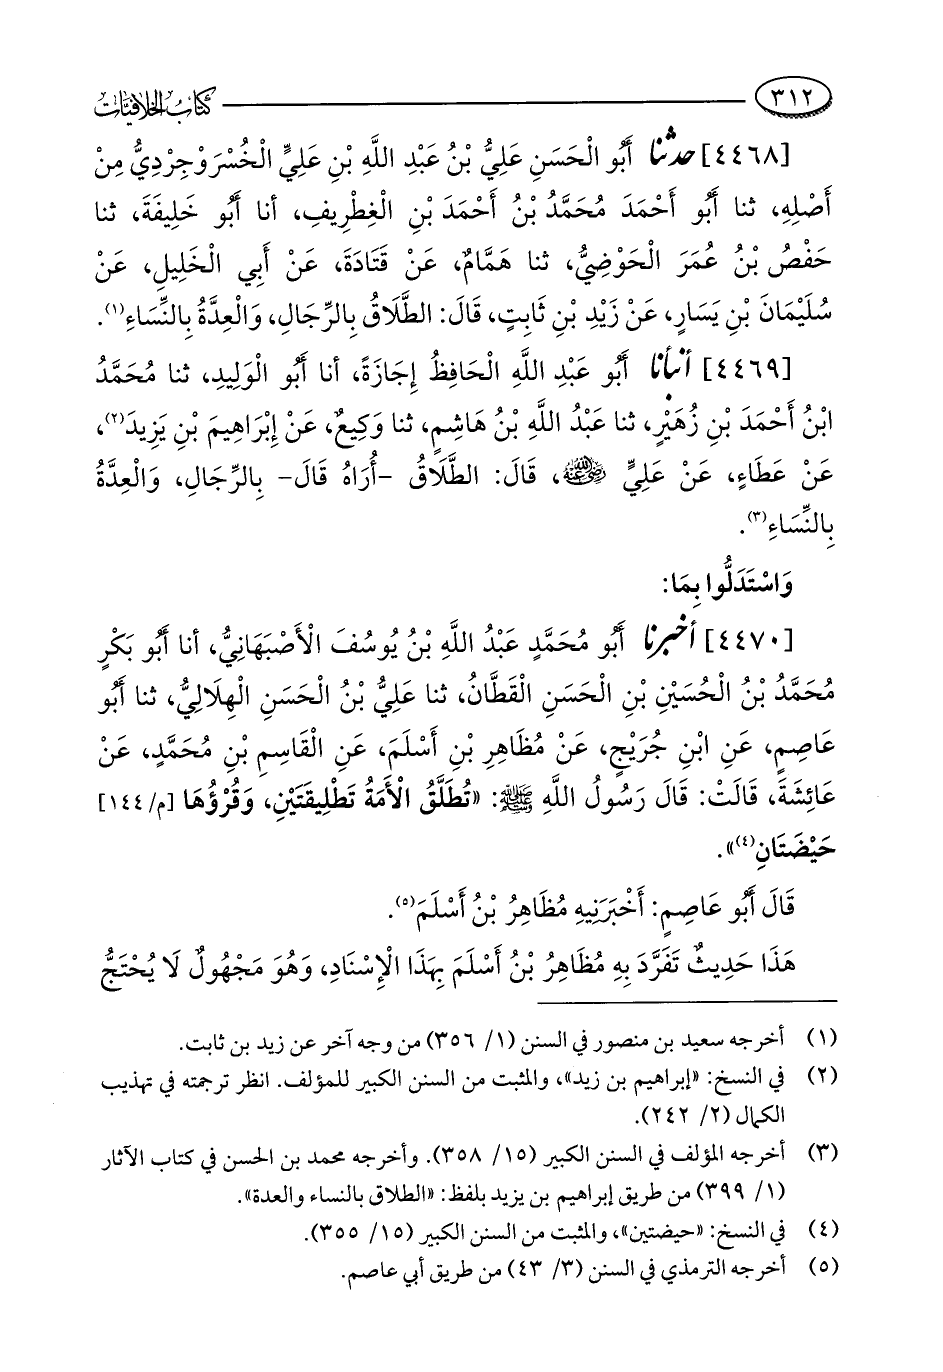 ٣١٢ كتاب الخلافيات
[٤٤٦٨] حدثنا أَبُو الْحَسَنِ عَلِيُّ بْنُ عَبْدِ اللَّهِ بْنِ عَلِيٍّ الْخُسْرَوْجِرْدِيُّ مِنْ
أَصْلِهِ، ثنا أَبُو أَحْمَدَ مُحَمَّدُ بْنُ أَحْمَدَ بْنِ الْغِطْرِيفِ، أنا أَبُو خَلِيفَةَ، ثنا
حَفْصُ بْنُ عُمَرَ الْحَوْضِيُّ، ثنا هَمَّامٌ، عَنْ قَتَادَةَ، عَنْ أَبِي الْخَلِيلِ، عَنْ
سُلَيْمَانَ بْنِ يَسَارٍ، عَنْ زَيْدِ بْنِ ثَابِتٍ، قَالَ: الطَّلَاقُ بِالرِّجَالِ، وَالْعِدَّةُ بِالنِّسَاءِ(١).
[٤٤٦٩] أنبأنا أَبُو عَبْدِ اللَّهِ الْحَافِظُ إِجَازَةً، أنا أَبُو الْوَلِيدِ، ثنا مُحَمَّدُ
ابْنُ أَحْمَدَ بْنِ زُهَيْرٍ، ثنا عَبْدُ اللَّهِ بْنُ هَاشِمٍ، ثنا وَكِيعٌ، عَنْ إِبْرَاهِيمَ بْنِ يَزِيدَ(٢)،
عَنْ عَطَاءٍ، عَنْ عَلِيٍّ رضي الله عنه، قَالَ: الطَّلَاقُ -أُرَاهُ قَالَ- بِالرِّجَالِ، وَالْعِدَّةُ
بِالنِّسَاءِ(٣).
وَاسْتَدَلُّوا بِمَا:
[٤٤٧٠] أخبرنا أَبُو مُحَمَّدٍ عَبْدُ اللَّهِ بْنُ يُوسُفَ الْأَصْبَهَانِيُّ، أنا أَبُو بَكْرٍ
مُحَمَّدُ بْنُ الْحُسَيْنِ بْنِ الْحَسَنِ الْقَطَّانُ، ثنا عَلِيُّ بْنُ الْحَسَنِ الْهِلَالِيُّ، ثنا أَبُو
عَاصِمٍ، عَنِ ابْنِ جُرَيْجٍ، عَنْ مُظَاهِرِ بْنِ أَسْلَمَ، عَنِ الْقَاسِمِ بْنِ مُحَمَّدٍ، عَنْ
عَائِشَةَ، قَالَتْ: قَالَ رَسُولُ اللَّهِ ﷺ: «تُطَلَّقُ الْأَمَةُ تَطْلِيقَتَيْنِ، وَقُرْؤُهَا [م/١٤٤]
حَيْضَتَانِ(٤)».
قَالَ أَبُو عَاصِمٍ: أَخْبَرَنِيهِ مُظَاهِرُ بْنُ أَسْلَمَ(٥).
هَذَا حَدِيثٌ تَفَرَّدَ بِهِ مُظَاهِرُ بْنُ أَسْلَمَ بِهَذَا الْإِسْنَادِ، وَهُوَ مَجْهُولٌ لَا يُحْتَجُّ
(١) أخرجه سعيد بن منصور في السنن (١/ ٣٥٦) من وجه آخر عن زيد بن ثابت.
(٢) في النسخ: «إبراهيم بن زيد»، والمثبت من السنن الكبير للمؤلف. انظر ترجمته في تهذيب
الكمال (٢/ ٢٤٢).
(٣) أخرجه المؤلف في السنن الكبير (١٥/ ٣٥٨). وأخرجه محمد بن الحسن في كتاب الآثار
(١/ ٣٩٩) من طريق إبراهيم بن يزيد بلفظ: «الطلاق بالنساء والعدة».
(٤) في النسخ: «حيضتين»، والمثبت من السنن الكبير (١٥/ ٣٥٥).
(٥) أخرجه الترمذي في السنن (٣/ ٤٣) من طريق أبي عاصم.